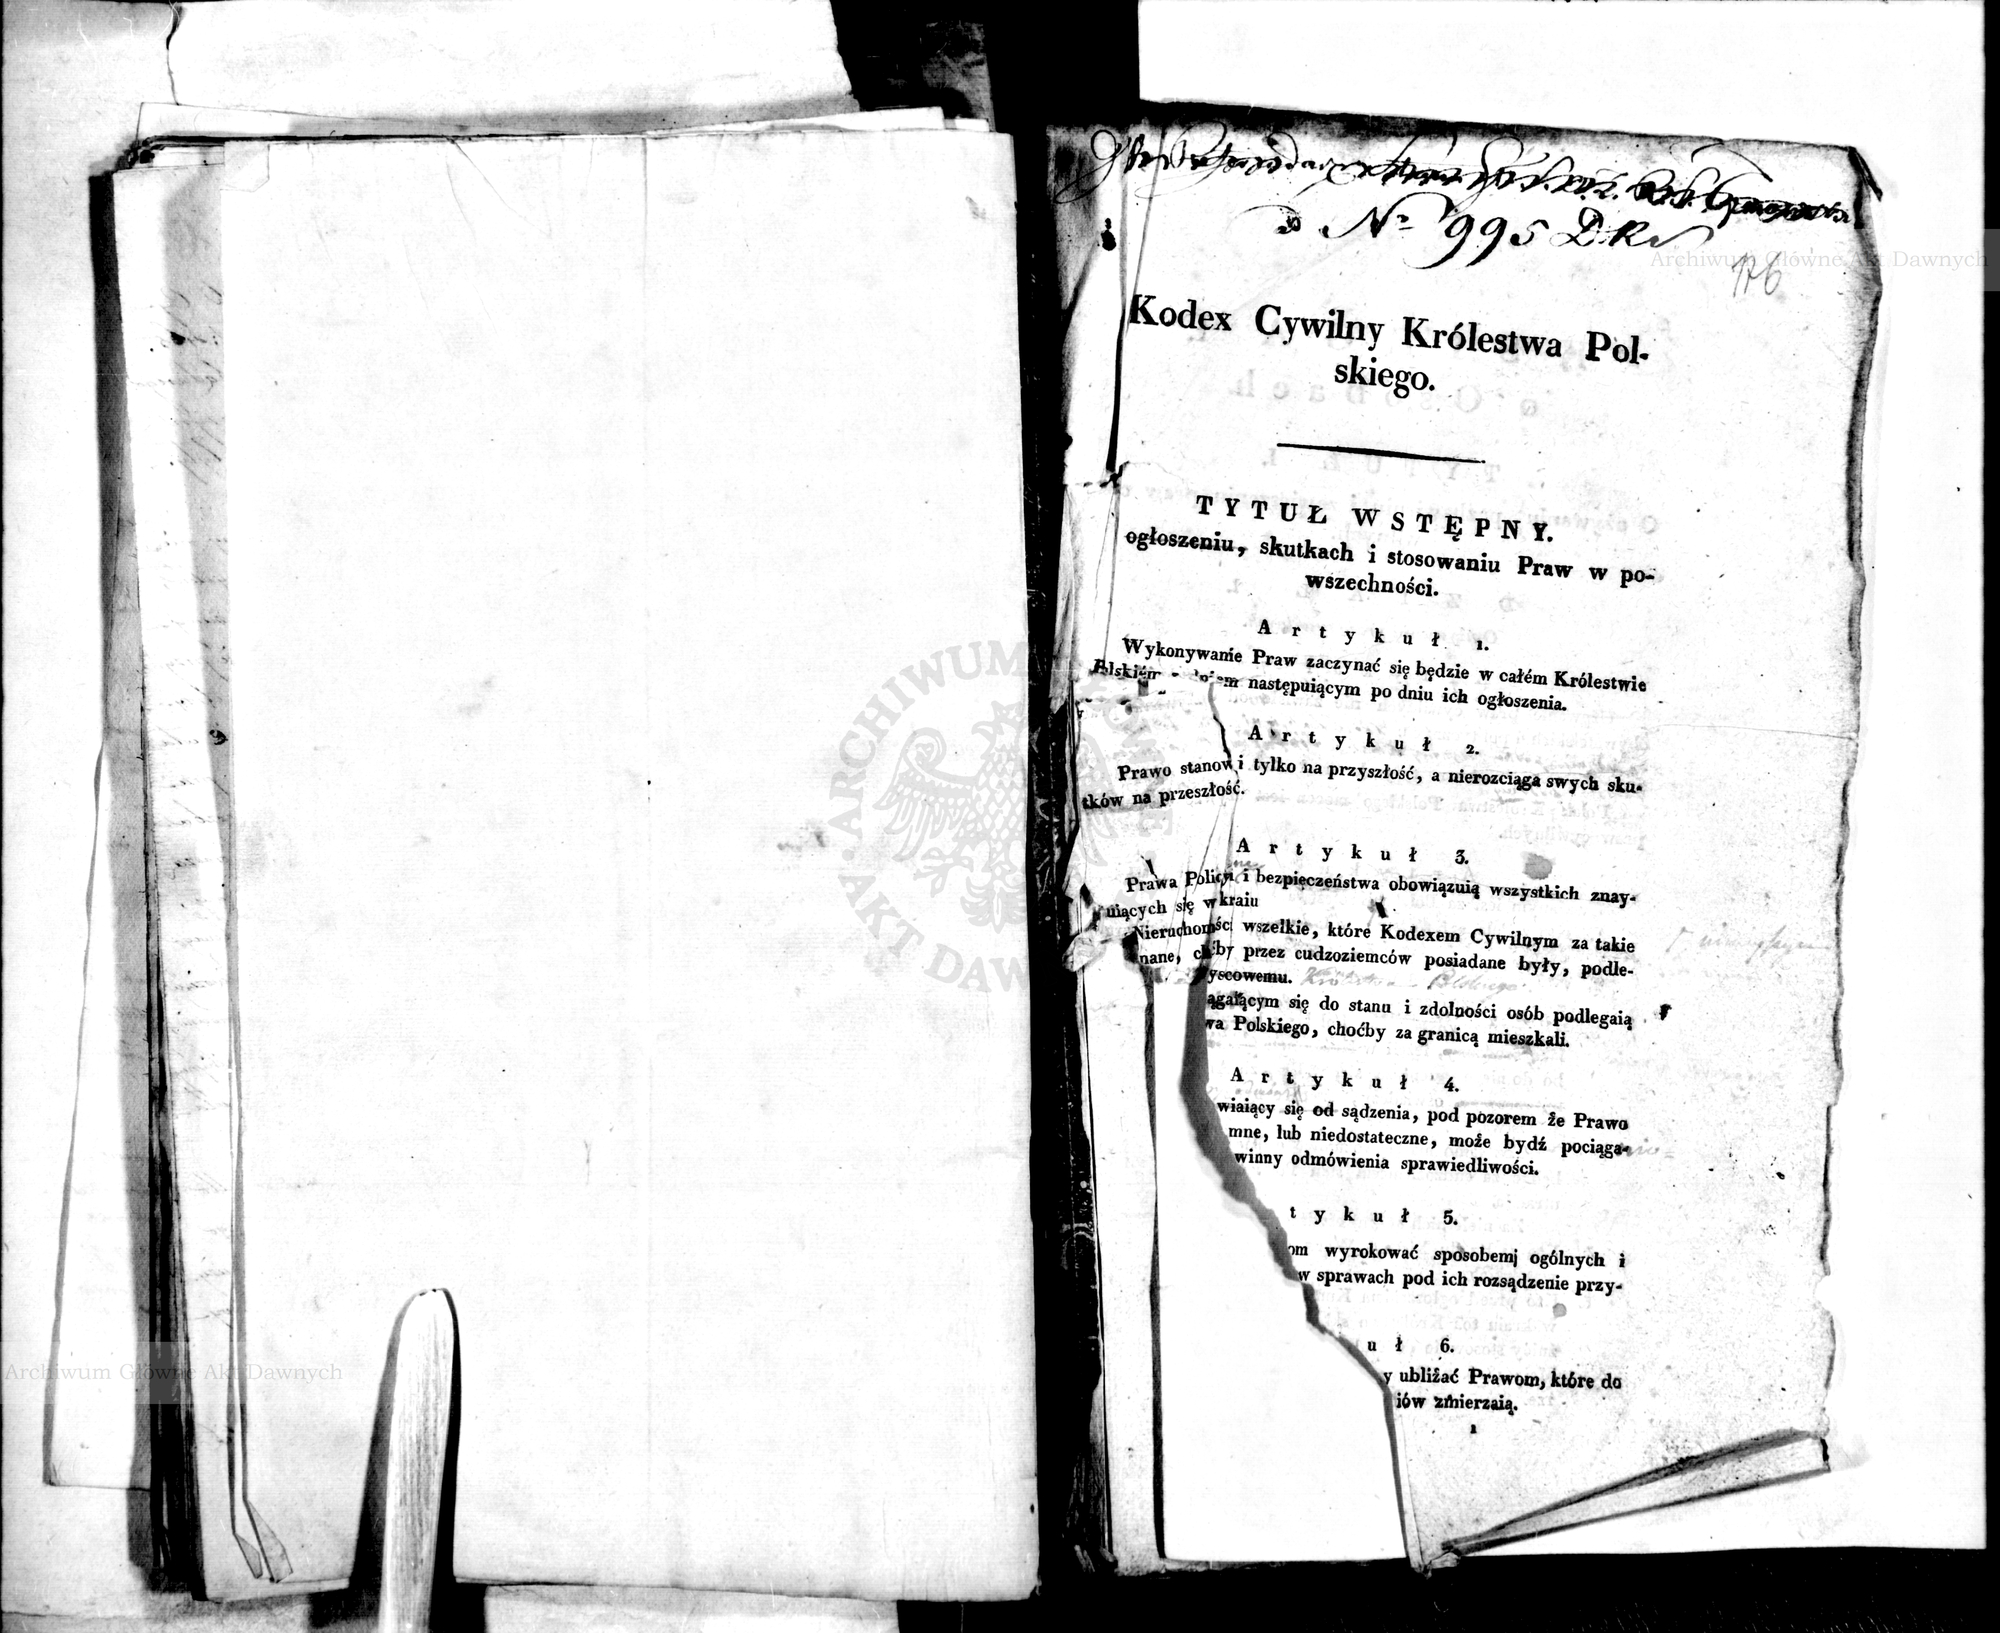 No 995 D.R.
176
Kodex Cywilny Królestwa Pol-
skiego.
TYTUŁ WSTĘPNY.
ogłoszeniu, skutkach i stosowaniu Praw w po-
wszechności.
Artykuł 1.
Wykonywanie Praw zaczynać się będzie w całém Królestwie
Polskiém następuiącym po dniu ich ogłoszenia.
Artykuł 2.
Prawo stanowi tylko na przyszłość, a nierozciąga swych sku-
tków na przeszłość.
Artykuł 3.
Prawa Policyi i bezpieczeństwa obowiązuią wszystkich znay-
uiących się w kraiu
Nieruchomści wszelkie, które Kodexem Cywilnym za takie
nane, choćby przez cudzoziemców posiadane były, podle-
yscowemu. Królestwa Polskiego
ągaiącym się do stanu i zdolności osób podlegaią
wa Polskiego, choćby za granicą mieszkali.
Artykuł 4.
wiaiący się od sądzenia, pod pozorem że Prawo
mne, lub niedostateczne, może bydź pociąga-
winny odmówienia sprawiedliwości.
tykuł 5.
om wyrokować sposobem ogólnych i
w sprawach pod ich rozsądzenie przy-
uł 6.
y ubliżać Prawom, które do
iów zmierzaią.
1
Archiwum Główne Akt Dawnych
Archiwum Główne Akt Dawnych